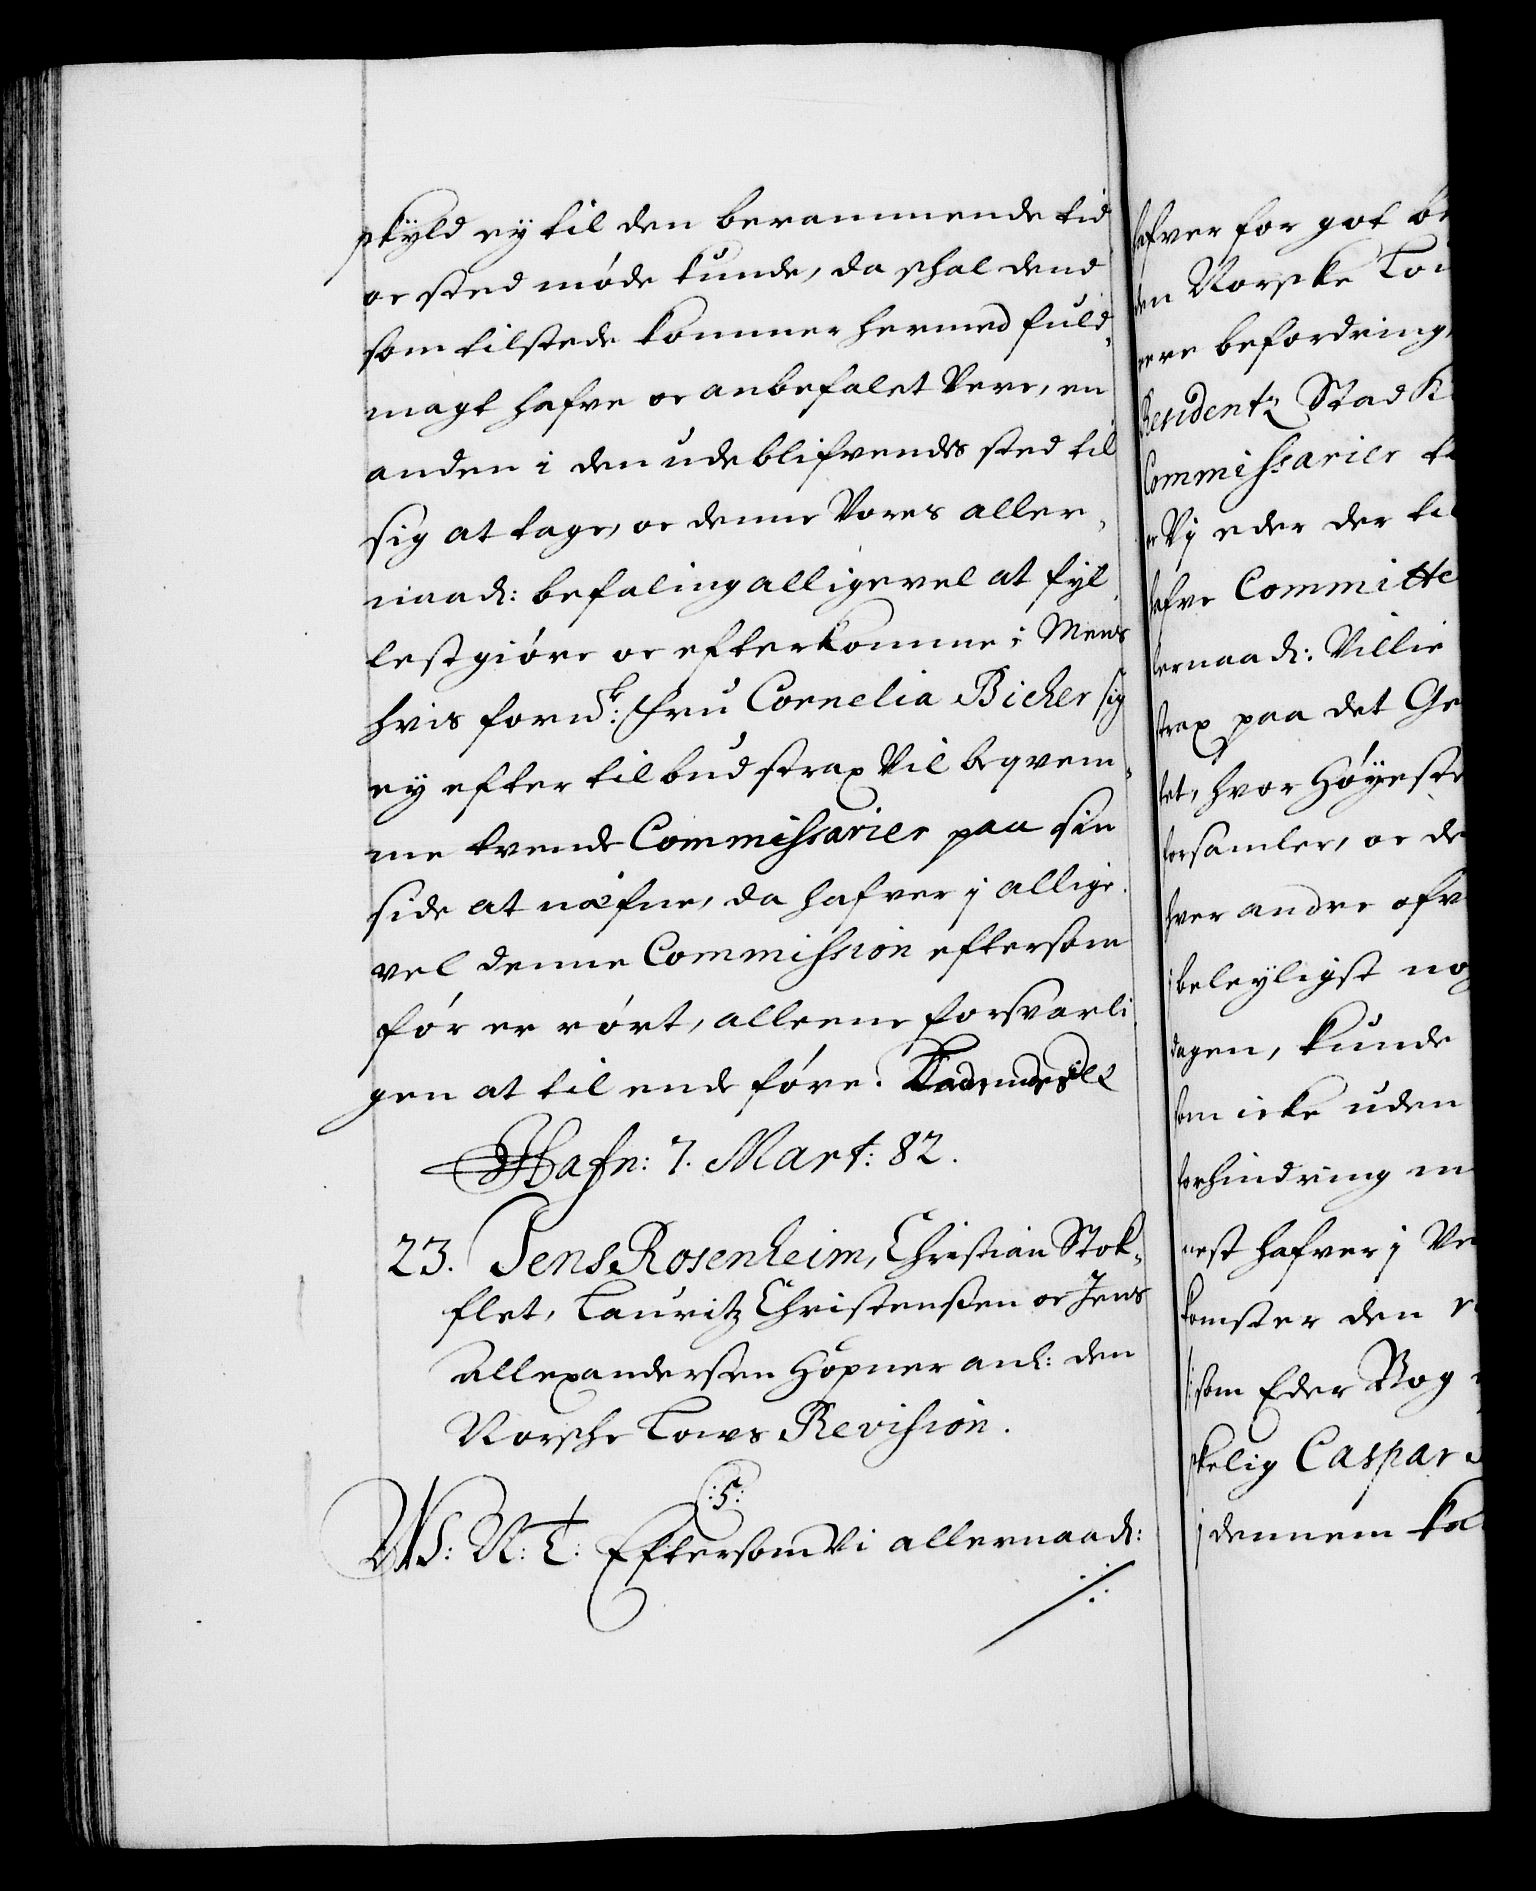 skyld ey til den berammende tid
oc sted møde kunde, da schal dend
som tilstede kommer hermed fuld„
magt hafve oc anbefalet Vere, en
anden i den udeblifvendes sted til
sig at tage, oc denne Vores aller„
naad: befaling alligevel at fyl„
lestgiøre oc efterkomme; Mens
hvis fornᵉ: Fru Cornelia Bicker sig
ey efter tilbud strax Vil beqvem„
me tvende Commissarier paa sin
side at næfne, da hafver j allige„
vel denne Commission eftersom
før er rørt, alleene forsvarli„
gen at til ende føre.
Hafn: 7. Mart: 82.
23. Jens Rosenheim, Christian Stok„
flet, Lauritz Christensen oc Jens
Allexandersen Høpner anl: den
Norsche Lows Revision.
:5:
W S: N: T: Eftersom Vi allernaad:
hafver for got be
den Norske Lou
mere befordring,
Residentz Stad K
Commissarier
oc Vj eder der til
hafve Committe
lernaad: Villie
strax paa det Ge
tet, hvor Høyeste
forsamler, oc de
hver andre ofv
beleyligst no
dagen, kunde
som icke uden
forhindring
nest hafver j Ve
komster den
som Eder Bog
skelig Caspar
j dennem ka